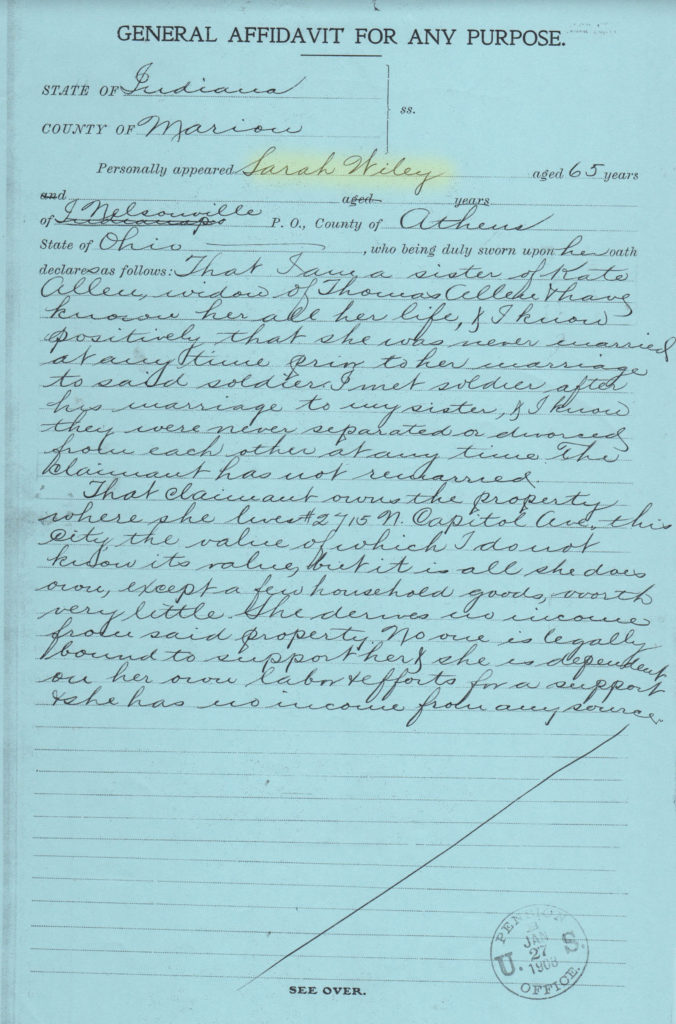 GENERAL AFFIDAVIT FOR ANY PURPOSE.
STATE OF Indiana
ss.
COUNTY OF Marion
Personally appeared Sarah Wiley aged 65 years
and aged years
of Nelsonville P. O., County of Athens
State of Ohio , who being duly sworn upon her oath
declares as follows: That I am a sister of Kate
Allen, widow of Thomas Allen & have
known her all her life, & I know
positively that she was never married
at any time prior to her marriage
to said soldier. I met soldier after
his marriage to my sister, & I know
they were never separated or divorced
from each other at any time. The
claimant has not remarried.
That claimant owns the property
where she lives #2715 N. Capitol Ave, this
city, the value of which I do not
know its value, but it is all she does
own, except a few household goods, worth
very little. She derives no income
from said property. No one is legally
bound to support her & she is dependent
on her own labor & efforts for a support
& she has no income from any source.
U. S.
PENSION
JAN
27
1908
OFFICE.
SEE OVER.